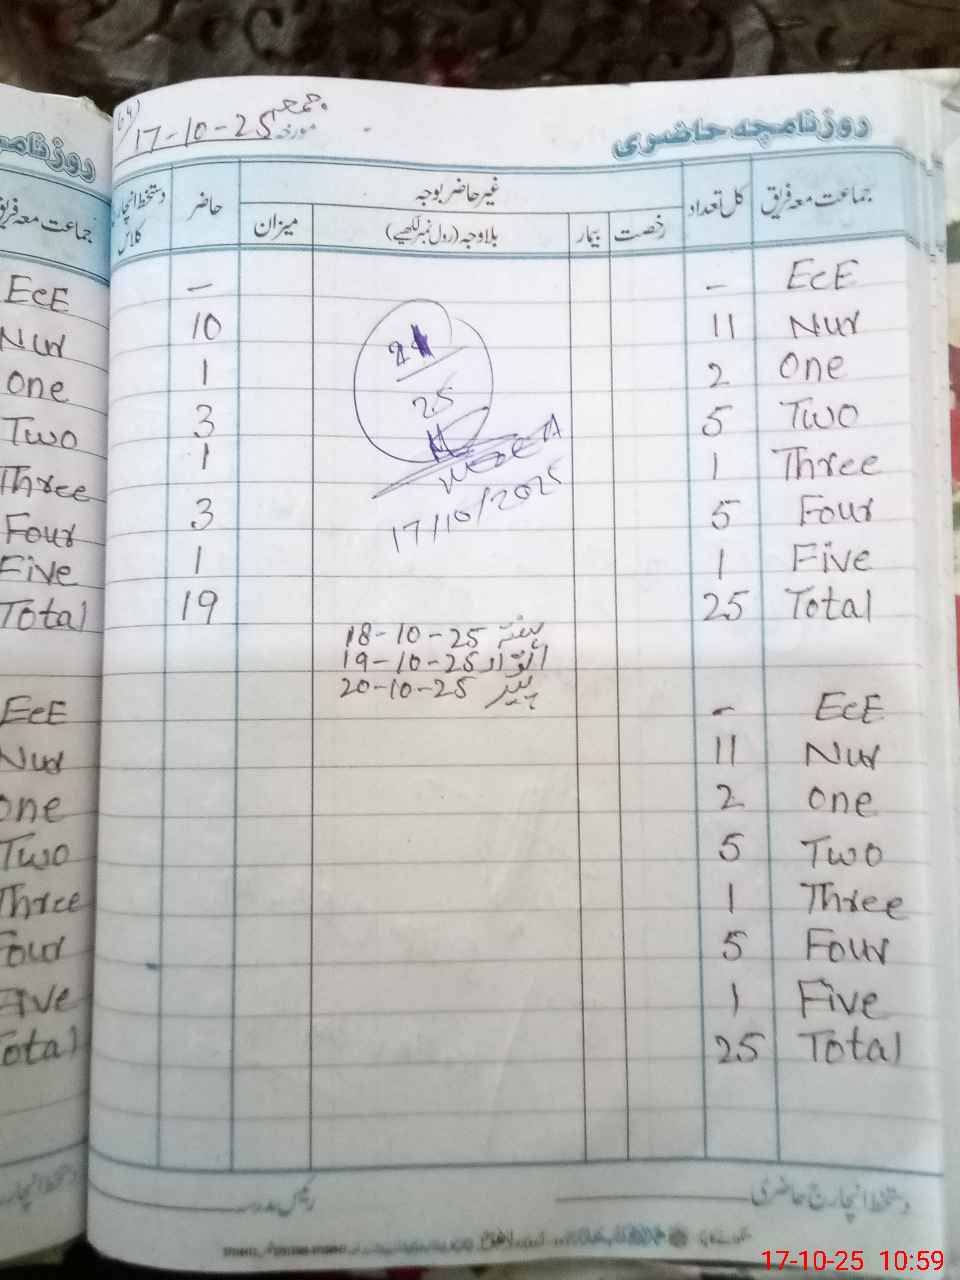 جمعہ
روزنامچہ حاضری مورخہ 17-10-25
جماعت معہ فریق کل تعداد غیر حاضر بوجہ حاضر دستخط انچارج کلاس
رخصت بیمار بلاوجہ (رول نمبر لکھیے) میزان
ECE - -
Nur 11 10
One 2 1
Two 5 3
Three 1 1
Four 5 3
Five 1 1
Total 25 19
25
17/10/2025
ہفتہ 18-10-25
اتوار 19-10-25
پیر 20-10-25
ECE -
Nur 11
One 2
Two 5
Three 1
Four 5
Five 1
Total 25
دستخط انچارج حاضری رئیس مدرسہ
روزنامچہ
جماعت معہ فریق
ECE
Nur
One
Two
Three
Four
Five
Total
ECE
Nur
One
Two
Three
Four
Five
Total
17-10-25 10:59